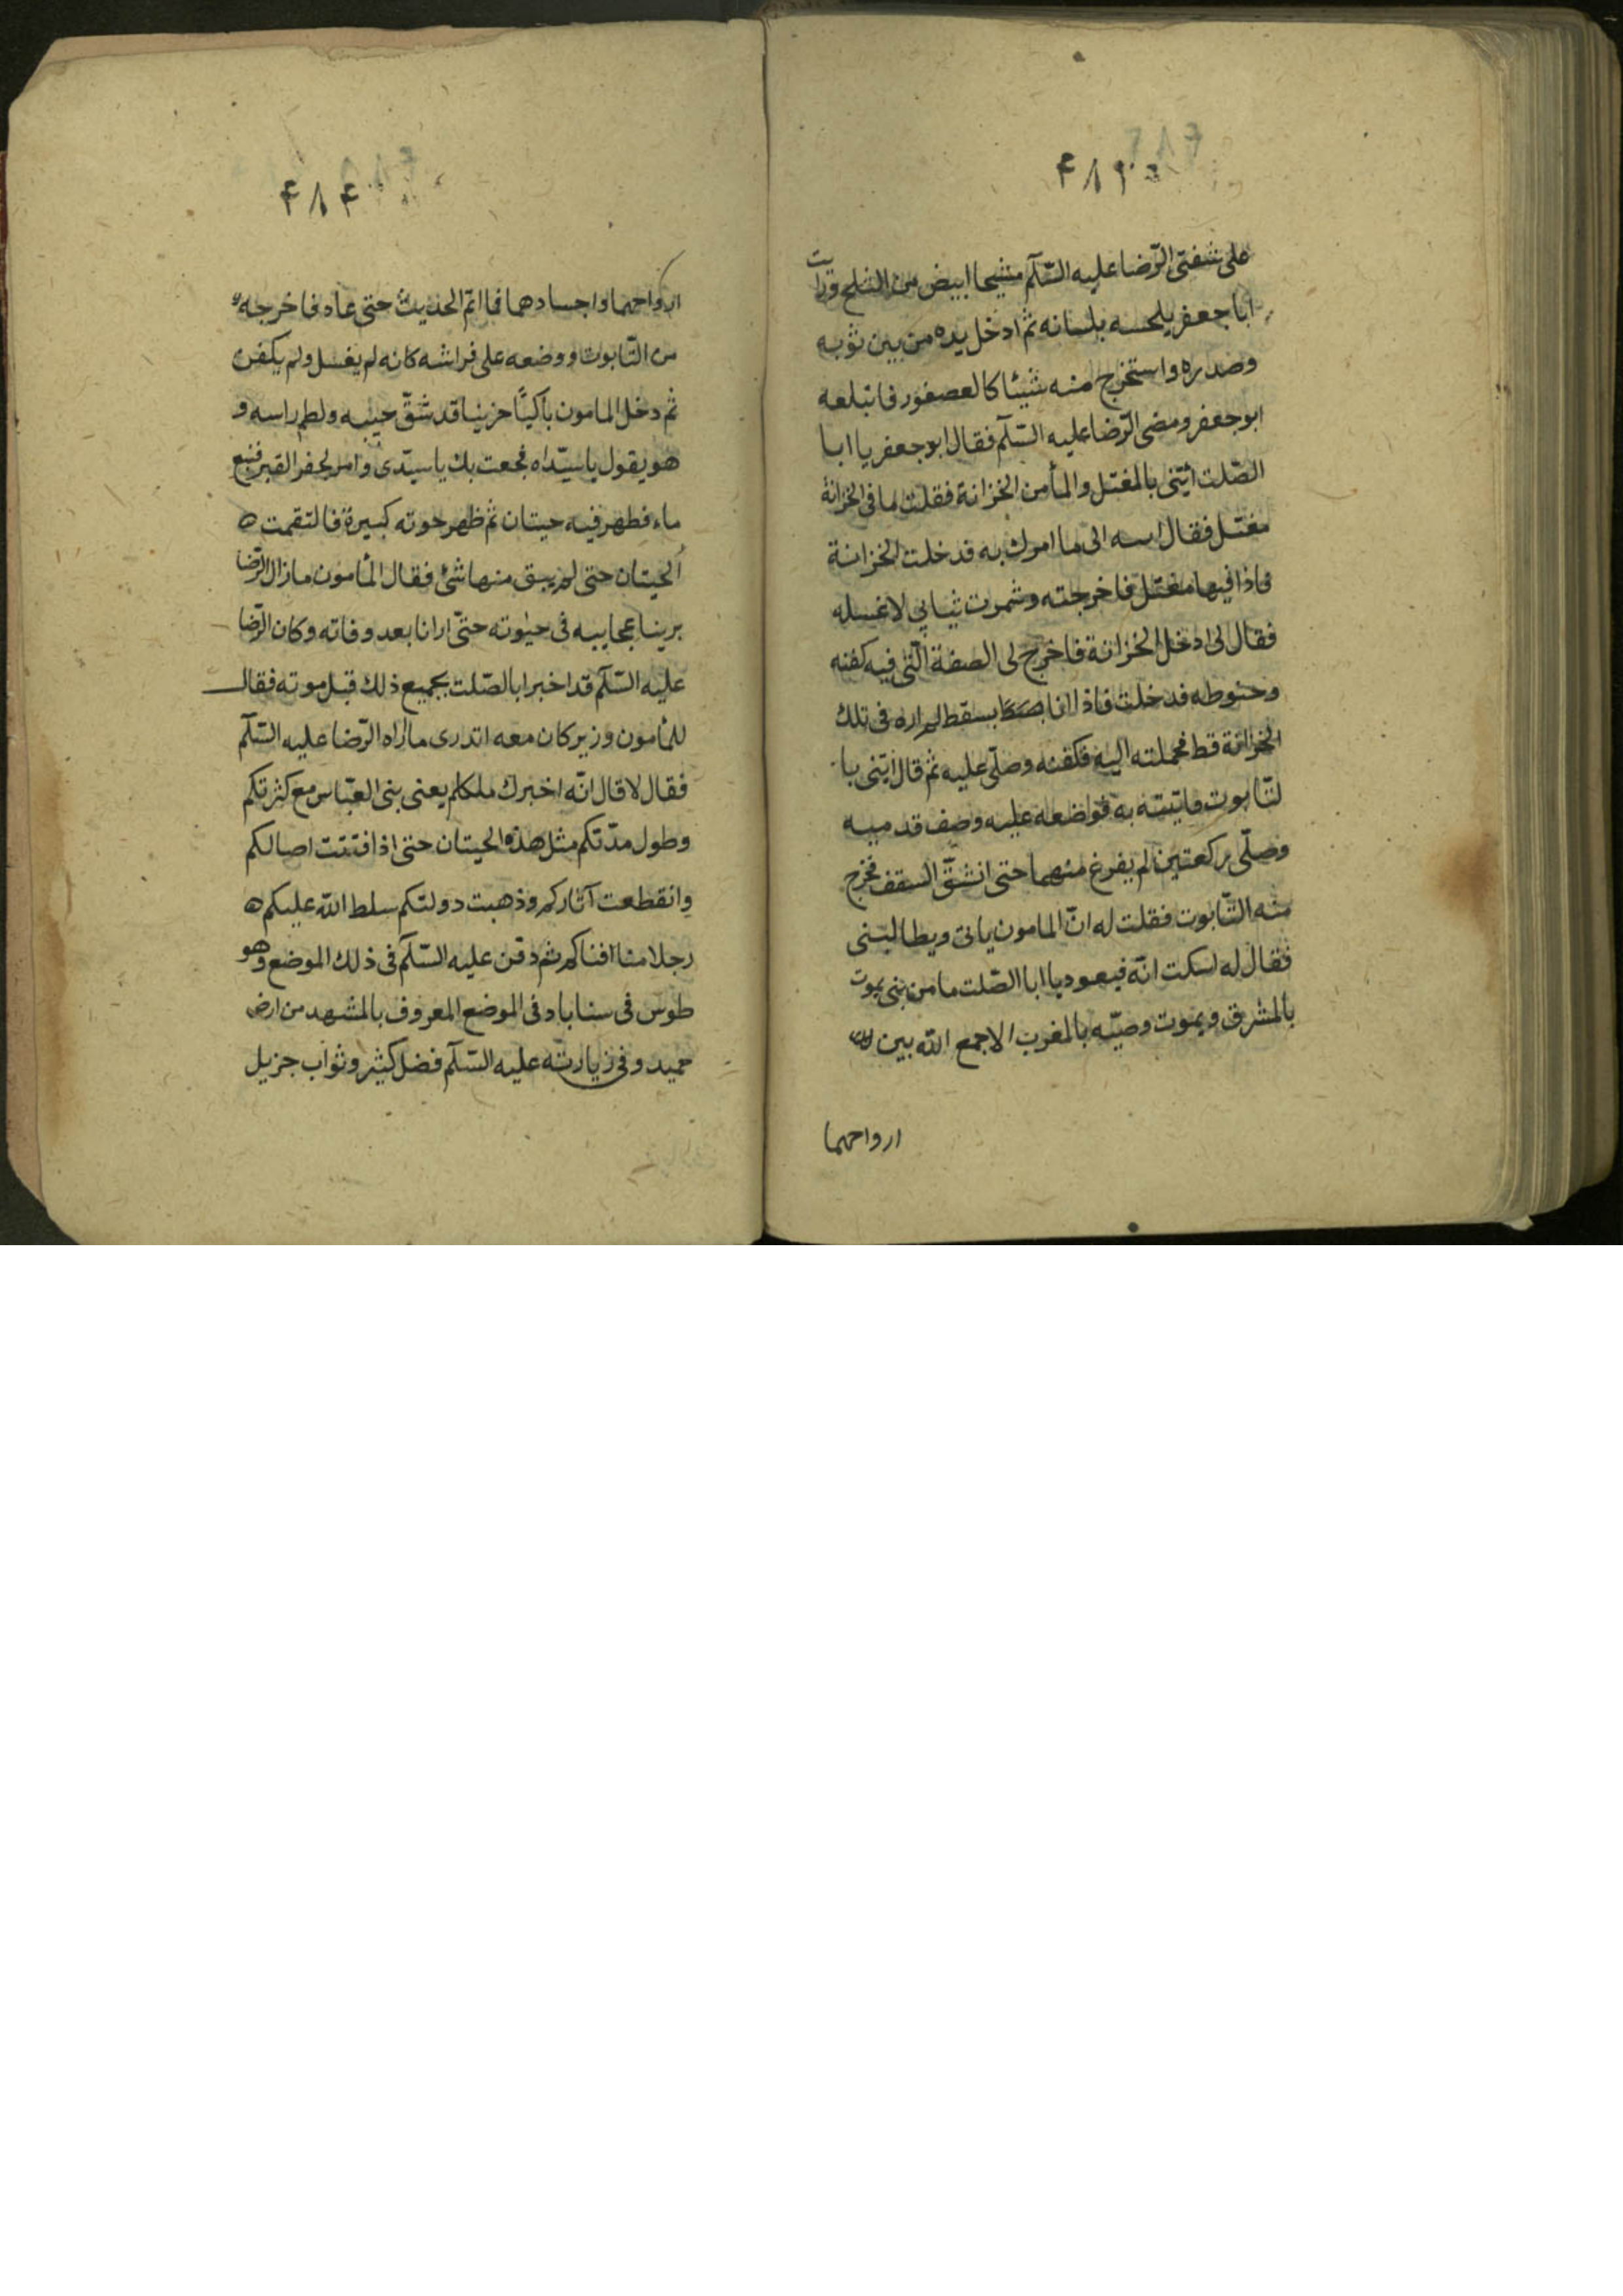 ۴۸۳
على شفتى الرّضا عليه السّلم شيحا ابيض من الثلج ورايت
ابا جعفر يلحسه بلسانه ثم ادخل يده من بين ثوبه
وصدره واستخرج منه شيئا كالعصفور فابتلعه
ابو جعفر ومضى الرّضا عليه السّلم فقال ابو جعفر يا ابا
الصّلت ائتنى بالمغتسل والمأ من الخزانة فقلت ما فى الخزانة
مغتسل فقال الى ما امرك به فدخلت الخزانة
فاذا فيها مغتسل فاخرجته وشمرت ثيابي لاغسله
فقال لى ادخل الخزانة فاخرج لى الصفة الّتى فيه كفنه
وحنوطه فدخلت فاذا انا بسقط لم اره فى تلك
الخزانة قط فحملته اليه فكفنه وصلّى عليه ثم قال ائتنى با
لتّابوت فاتيته به فواضعه عليه وصف قدميه
وصلّى ركعتين لم يفرغ منهما حتى انشقّ السقف فخرج
منه التّابوت فقلت له انّ المامون ياتى ويطالبنى
فقال له اسكت انّه فيعود يا ابا الصّلت ما من بنى يموت
بالمشرق ويموت وصيّه بالمغرب الا جمع الله بين
ارواحهما
۴۸۴
ارواحهما واجسادهما فما اتم الحديث حتى عاد فاخرجه
من التّابوت ووضعه على فراشه كانه لم يغسل ولم يكفن
ثم دخل المامون باكيًا حزينا قد شقّ جيبه ولطم راسه و
هو يقول يا سيّداه فجعت بك يا سيّدى وامر لحفر القبر فنبع
ماء فظهر فيه حيتان ثم ظهر حوته كبيرة فالتقمت
الحيتان حتى لم يبق منها شئ فقال المأمون ما زال الرّضا
يرينا عجايبه فى حيٰوته حتّى ارانا بعد وفاته وكان الرّضا
عليه السّلم قد اخبر ابا الصّلت بجميع ذلك قبل موته فقال
للمأمون وزير كان معه اتدرى ما اراه الرّضا عليه السّلم
فقال لا قال انّه اخبرك ملككم يعنى بنى العبّاس مع كثرتكم
وطول مدّتكم مثل هذه الحيتان حتى اذا افتتت اصالكم
وانقطعت آثاركم وذهبت دولتكم سلط الله عليكم
رجلا منا افناكم ثم دفن عليه السّلم فى ذلك الموضع وهو
طوس فى سناباد فى الموضع المعروف بالمشهد من ارض
حميد وفى زيارته عليه السّلم فضل كثير وثواب جزيل